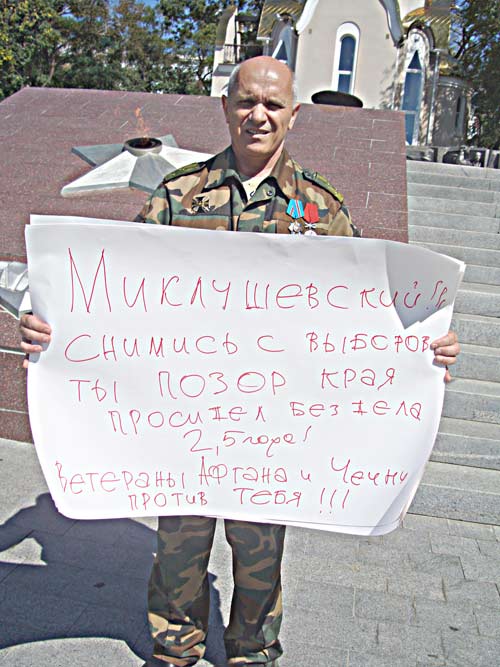 Миклушевский!!
снимись с выборов
ты позор края
просидел без дела
2,5 года!
Ветераны Афгана и Чечни
против тебя!!!